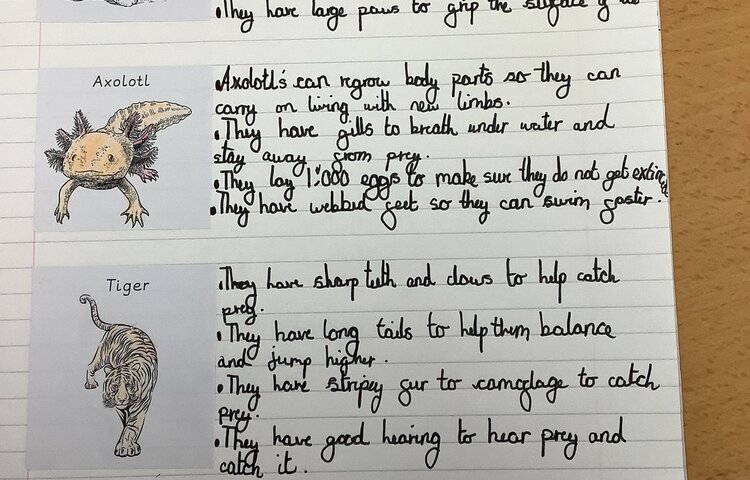 •They have large paws to grip the surface
Axolotl
•Axolotl's can regrow body parts so they can
carry on living with new limbs.
•They have gills to breath under water and
stay away from prey.
•They lay 1,000 eggs to make sure they do not get extinct
•They have webbed feet so they can swim faster.
Tiger
•They have sharp teeth and claws to help catch
prey.
•They have long tails to help them balance
and jump higher.
•They have stripey fur to camoflage to catch
prey.
•They have good hearing to hear prey and
catch it.